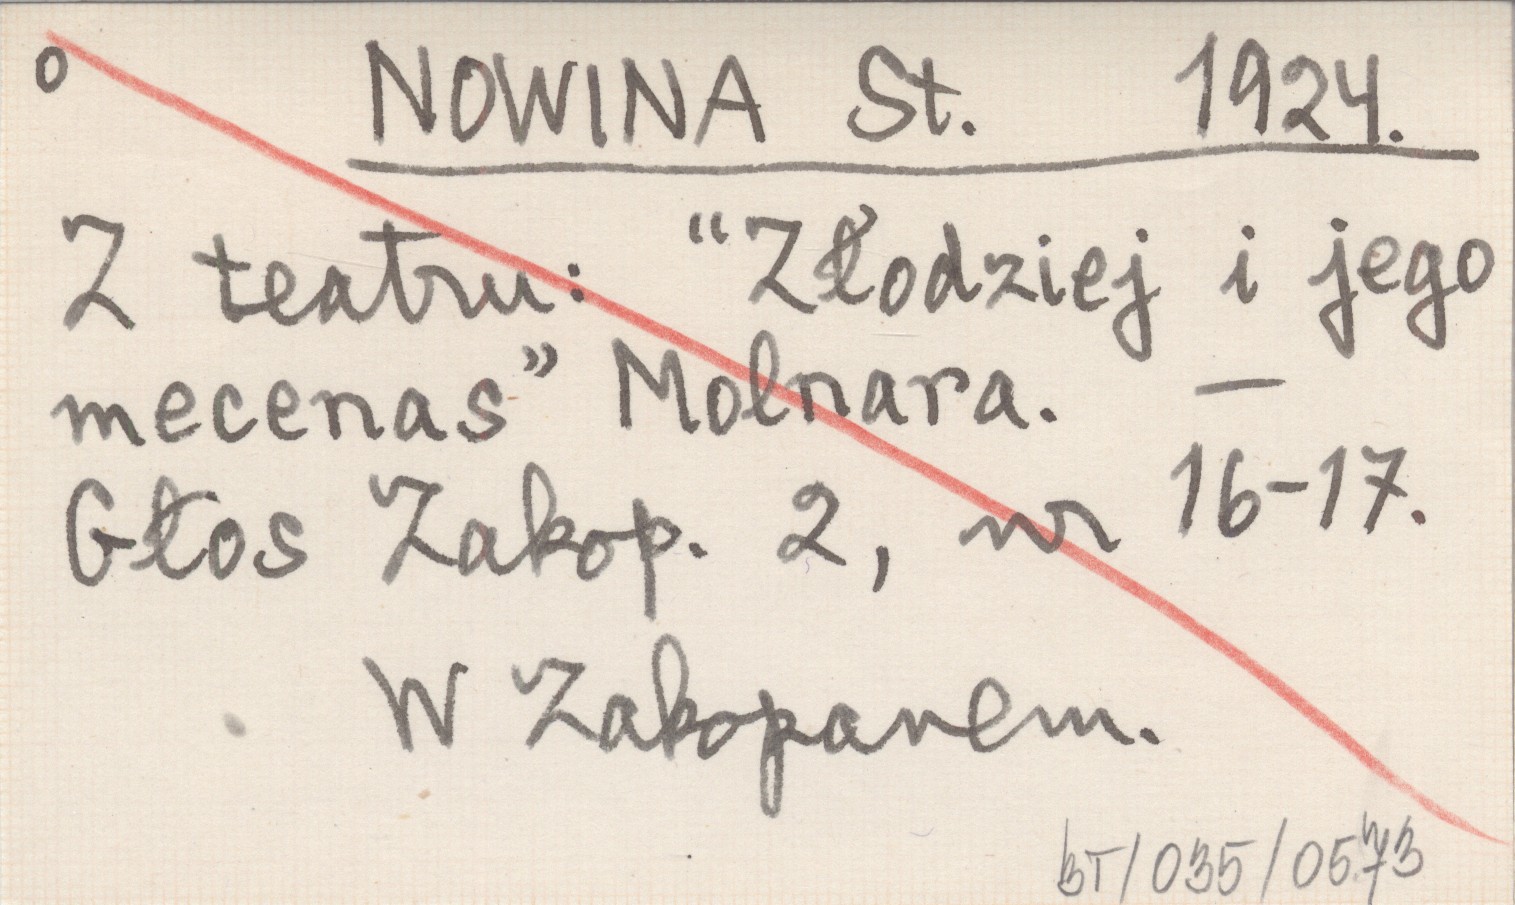 o NOWINA St. 1924.
Z teatru: "Złodziej i jego
mecenas" Molnara. —
Głos Zakop. 2, nr 16-17.
W Zakopanem.
BT/035/0573